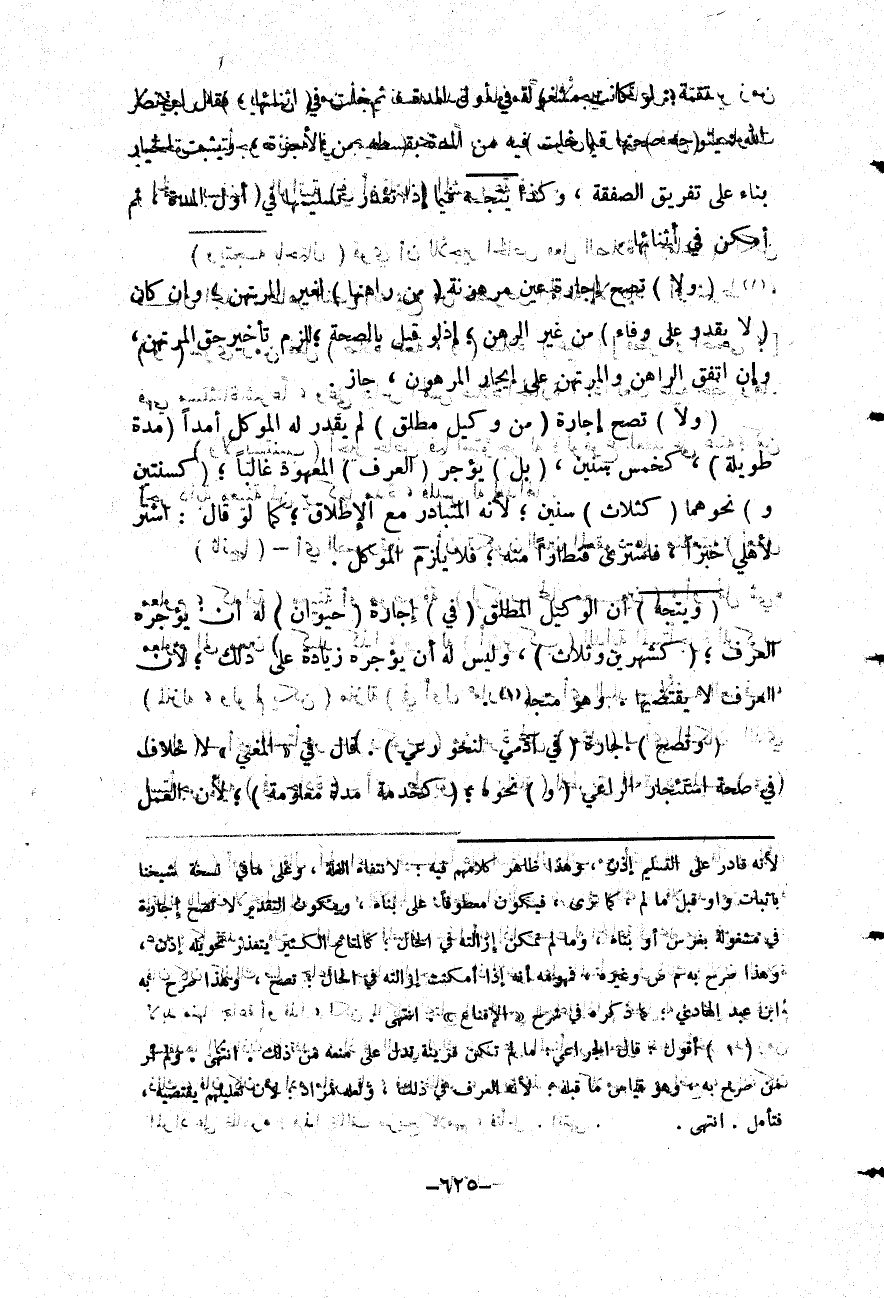 بناء على تفريق الصفقة ، وكذا يتجه فيما إذا تعذر تسليمها في أول المدة ، ثم
أمكن في أثنائها .
( ولا ) تصح إجارة عين مرهونة ( من راهنها ) لغير المرتهن ؛ وإن كان
( لا يقدر على وفاء ) من غير الرهن ؛ إذ لو قيل بالصحة ؛ للزم تأخير حق المرتهن ،
وإن اتفق الراهن والمرتهن على إيجار المرهون ، جاز .
( ولا ) تصح إجارة ( من وكيل مطلق ) لم يقدر له الموكل أمداً ( مدة
طويلة ) ، كخمس سنين ، ( بل ) يؤجر ( العرف ) المعهود غالباً ؛ ( كسنتين
و ) نحوهما ( كثلاث ) سنين ؛ لأنه المتبادر مع الإطلاق ؛ كما لو قال : اشتر
لأهلي خبزاً ، فاشترى قنطاراً منه ؛ فلا يلزم الموكل .
( ويتجه ) أن الوكيل المطلق ( في ) إجارة ( حيوان ) له أن يؤجره
العرف ؛ ( كشهرين وثلاث ) ، وليس له أن يؤجره زيادة على ذلك ؛ لأن
العرف لا يقتضيها ، وهو متجه (١) .
( وتصح ) إجارة ( في آدمي لنحو رعي ) . قال في « المغني » لا خلاف
في صحة استئجار الراعي ( و ) نحوه ؛ ( كخدمة مدة معلومة ) ؛ لأن العمل
لأنه قادر على التسليم إذن ، وهذا ظاهر كلامهم فيه ؛ لانتفاء العلة ، وعلى ما في نسخة شيخنا
باثبات واو قبل ما لم ، كما ترى ، فيكون معطوفاً على بناء ، ويكون التقدير لا تصح إجارة
في مشغولة بغرس أو بناء ، وما لم تمكن إزالته في الحال ؛ كالمتاع الكثير يتعذر تحويله إذن ،
وهذا صرح به م ص وغيره ، فمفهومه أنه إذا أمكنت إزالته في الحال ؛ تصح ، وبهذا صرح به
ابن عبد الهادي ؛ كما ذكره في شرح « الإقناع » . انتهى .
( ١ ) أقول : قال الجراعي : ما لم تكن قرينة تدل على منعه من ذلك . انتهى . ولم أر
من صرح به ، وهو قياس ما قبله ؛ لأنه العرف في ذلك ، ولعله مراد ؛ لأن تعليلهم يقتضيه ،
فتأمل . انتهى .
–٦٢٥–